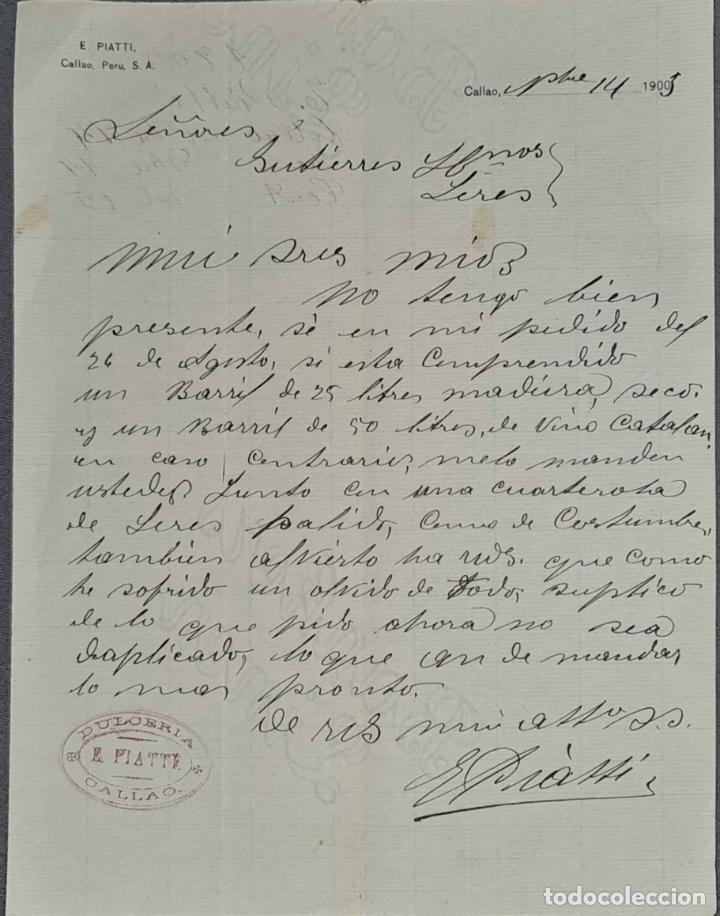 E. PIATTI,
Callao, Peru, S. A.
Callao, Nbre 14 1905
Señores
Gutierres Hnos
Seres
Mui Sres mios
no tengo bien
presente, sé en mi pedido del
26 de Agosto, si esta Comprendido
un Barril de 25 litres madiera, seco.
y un Barril de 50 litres, de vino Catalan.
en caso Contrario, melo manden
ustedes Junto con una cuarterola
de Seres palido, Como de Costumbre,
tambien alvierto ha uds. que como
he sofrido un olvido de todo, suplico
de lo que pido ahora no sea
duplicado, lo que an de mandar
lo mas pronto.
de uds mui atto s.s.
E Piatti
DULCERIA
E. PIATTI
CALLAO.
todocoleccion.net